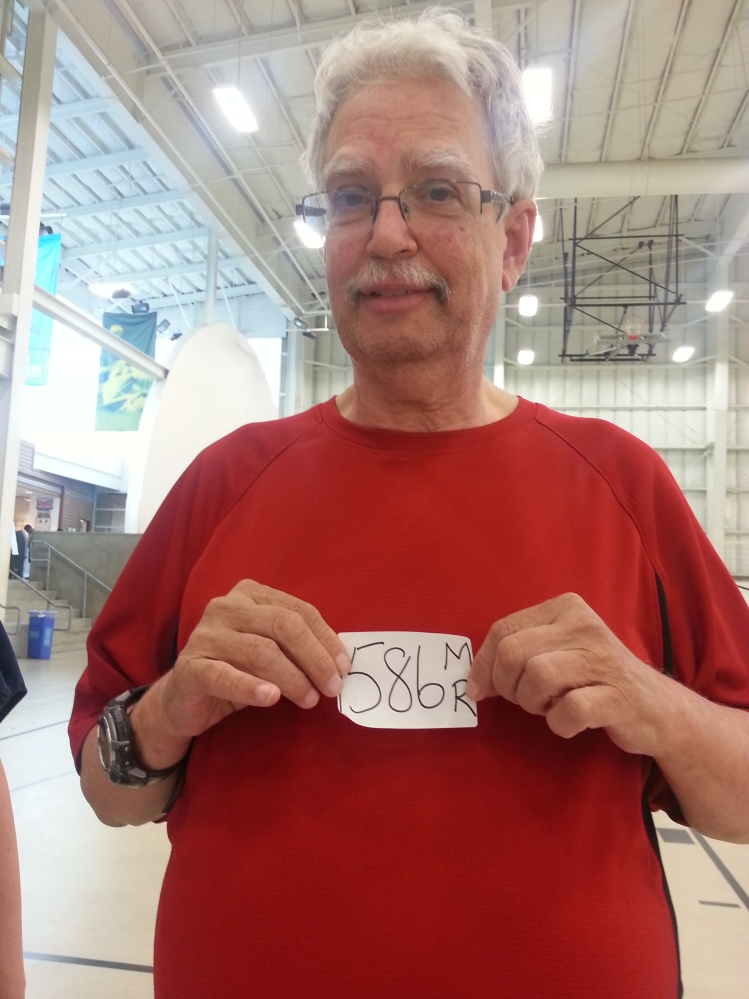 586 M
R